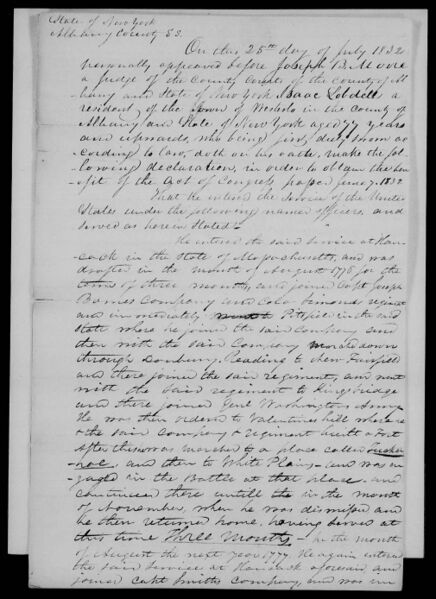 State of New York
Albany County SS.
On this 25th day of July 1832
personally appeared before Joseph B. Moore
a judge of the County Courts of the county of Al-
-bany and State of New York Isaac Lobdill a
resident of the Town of Westerlo in the County of
Albany and State of New York aged 77 years
and upwards, who being first duly sworn ac-
-cording to law, doth on his oath, make the fol-
-lowing declaration, in order to obtain the ben-
-efit of the Act of Congress passed June 7, 1832
That he entered the Service of the United
States under the following named officers, and
served as herein Stated
He entered the said Service at Han-
-cock in the State of Massachusetts, and was
drafted in the month of August 1776 for the
term of three months, and joined Capt Joseph
Barnes Company and Colo Simonds regiment
and immediately Pitsfield in the said
State where he joined the said Company and
then with the said Company marched down
through Danbury, Reading to New Fairfield
and there joined the said regiment, and went
with the said regiment to Kingsbridge
and there joined Genl Washingtons Army
He was then ordered to Valentines hill where
the said Company & regiment built a Fort
After this was marched to a place called
and then to White Plains and was en-
-gaged in the Battle at that place and
continued there untill the in the month
of November, when he was dismissed and
he then returned home, having served at
this time Three Months - In the month
of August the next year 1777. He again entered
the said Service at Hancock aforesaid and
joined Capt Smiths Company, and was